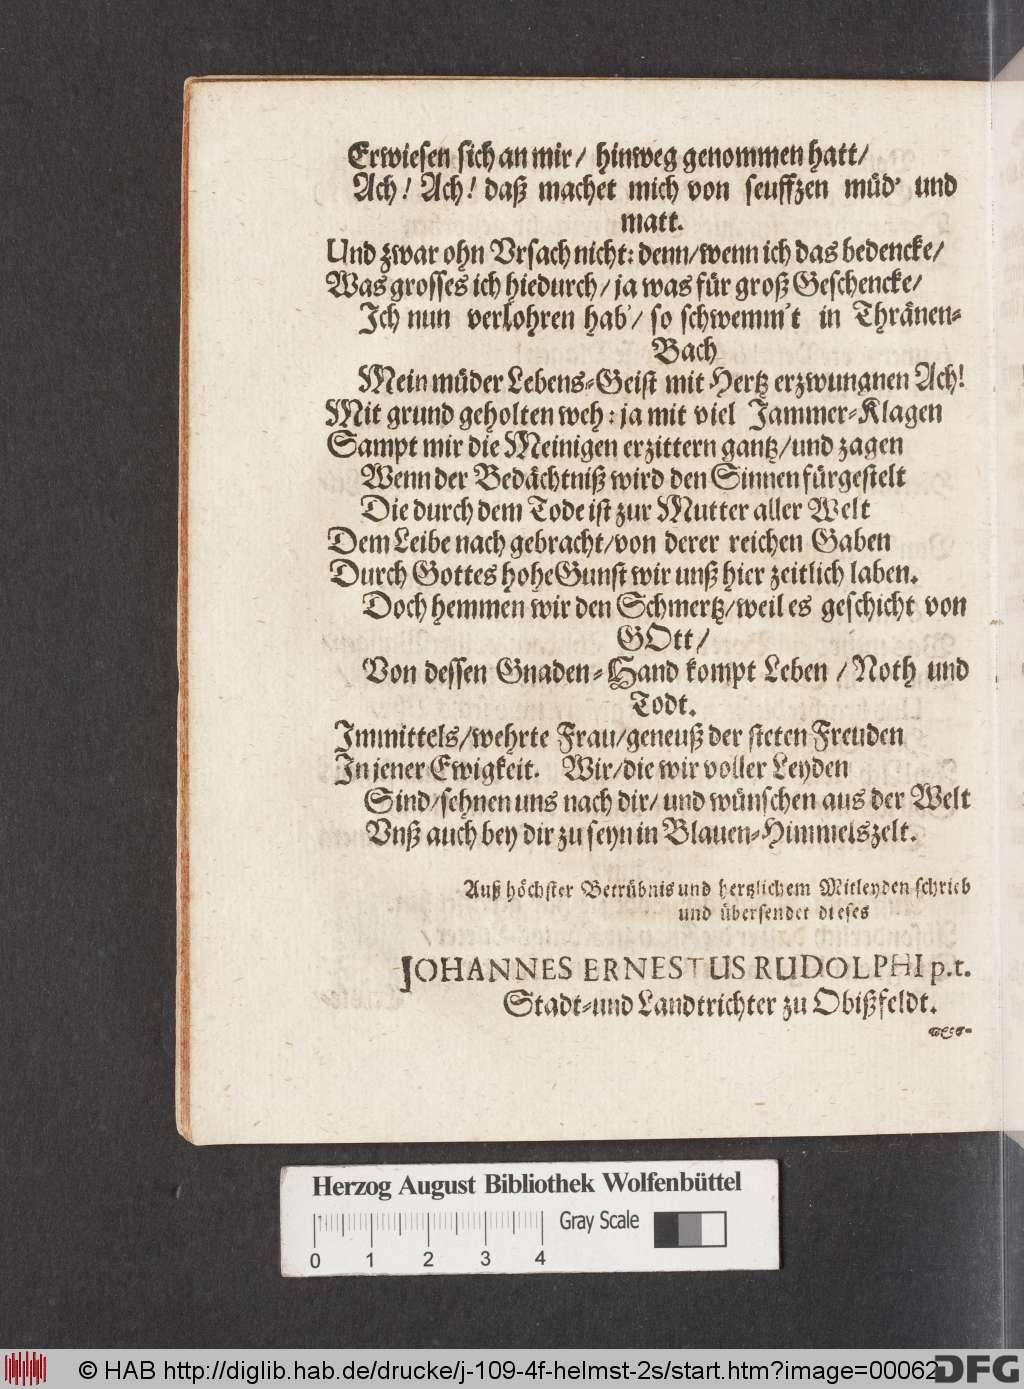 Erwiesen sich an mir/ hinweg genommen hatt/
Ach! Ach! daß machet mich von seuffzen müd' und
matt.
Und zwar ohn Vrsach nicht: denn/wenn ich das bedencke/
Was grosses ich hiedurch/ ja was für groß Geschencke/
Ich nun verlohren hab'/ so schwemm't in Thränen-
Bach
Mein müder Lebens-Geist mit Hertz erzwungnen Ach!
Mit grund geholten weh: ja mit viel Jammer-Klagen
Sampt mir die Meinigen erzittern gantz/und zagen
Wenn der Bedächtniß wird den Sinnen fürgestelt
Die durch dem Tode ist zur Mutter aller Welt
Dem Leibe nach gebracht/von derer reichen Gaben
Durch Gottes hohe Gunst wir unß hier zeitlich laben.
Doch hemmen wir den Schmertz/weil es geschicht von
GOtt/
Von dessen Gnaden-Hand kompt Leben / Noth und
Todt.
Immittels/wehrte Frau/geneuß der steten Freuden
In jener Ewigkeit. Wir/die wir voller Leyden
Sind/sehnen uns nach dir/ und wünschen aus der Welt
Vnß auch bey dir zu seyn in Blauen-Himmelszelt.
Auß höchster Betrübnis und hertzlichem Mitleyden schrieb
und übersendet dieses
JOHANNES ERNESTUS RUDOLPHI p.t.
Stadt-und Landtrichter zu Obißfeldt.
Herzog August Bibliothek Wolfenbüttel
Gray Scale
0 1 2 3 4
© HAB http://diglib.hab.de/drucke/j-109-4f-helmst-2s/start.htm?image=00062
DFG